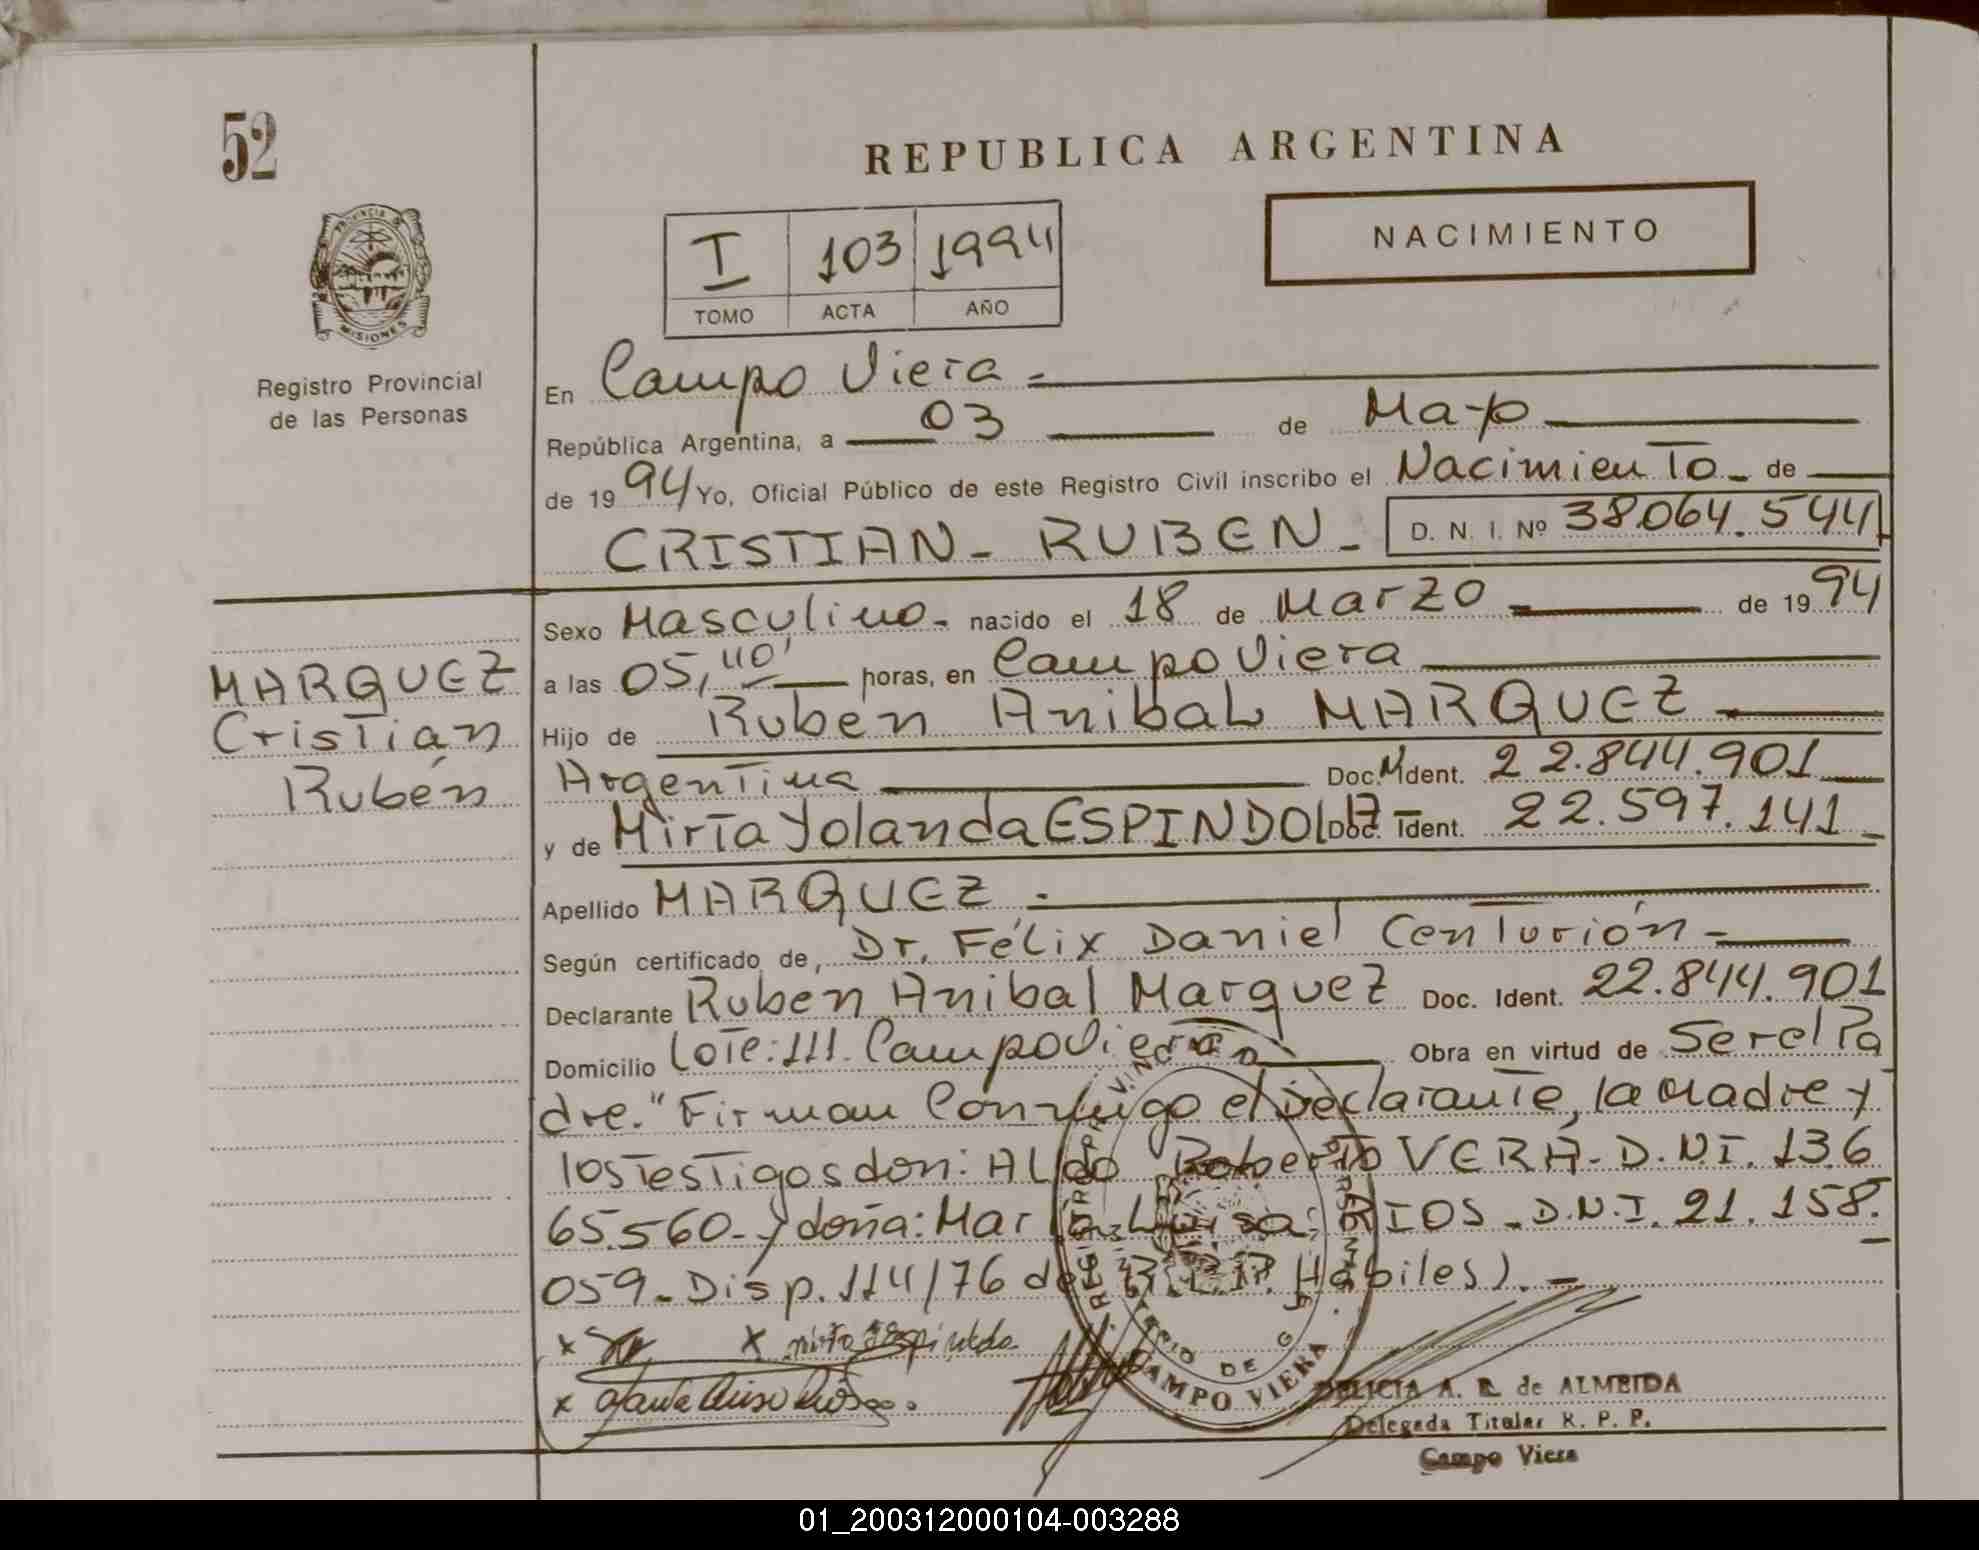 52
REPUBLICA ARGENTINA
NACIMIENTO
I 103 1994
TOMO ACTA AÑO
PROVINCIA DE
MISIONES
Registro Provincial
de las Personas
En Campo Viera
República Argentina, a 03 de Mayo
de 1994 Yo, Oficial Público de este Registro Civil inscribo el Nacimiento de
CRISTIAN - RUBEN - D. N. I. Nº 38.064.544
Sexo Masculino - nacido el 18 de Marzo de 1994
a las 05,40' horas, en Campo Viera
Hijo de Rubén Anibal MARQUEZ
Argentina Doc. M Ident. 22.844.901
y de Mirta Yolanda ESPINDOLA Doc. Ident. 22.597.141
Apellido MARQUEZ
Según certificado de, Dr. Félix Daniel Centurión
Declarante Ruben Anibal Marquez Doc. Ident. 22.844.901
Domicilio Lote: 111. Campo Viera Obra en virtud de Ser el Pa
dre." Firman Conmigo el Declarante, la Madre y
los Testigos don: Aldo Roberto VERA - D.N.I. 13.6
65.560 - y doña: María Luisa RIOS - D.N.I. 21.158.
059 - Disp. 114/76 del R.P.P. Habiles).
MARQUEZ
Cristian
Rubén
x x mirta Espindola
x Maria Luisa Rios
CAMPO VIERA
DELICIA A. R. de ALMEIDA
Delegada Titular R. P. P.
Campo Viera
01_200312000104-003288